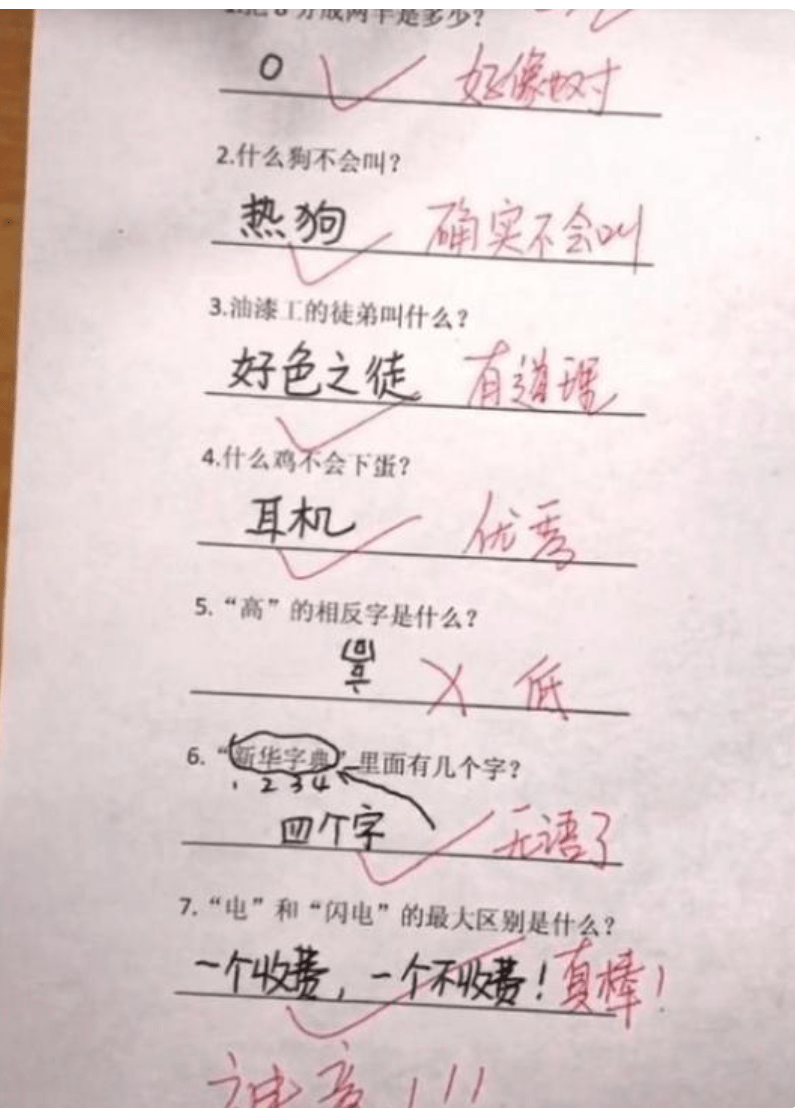 1.把8分成两半是多少？
0 好像也对
2.什么狗不会叫？
热狗 确实不会叫
3.油漆工的徒弟叫什么？
好色之徒 有道理
4.什么鸡不会下蛋？
耳机 优秀
5.“高”的相反字是什么？
低
6.“新华字典”里面有几个字？
1 2 3 4
四个字 无语了
7.“电”和“闪电”的最大区别是什么？
一个收费，一个不收费！真棒！
神童！！！